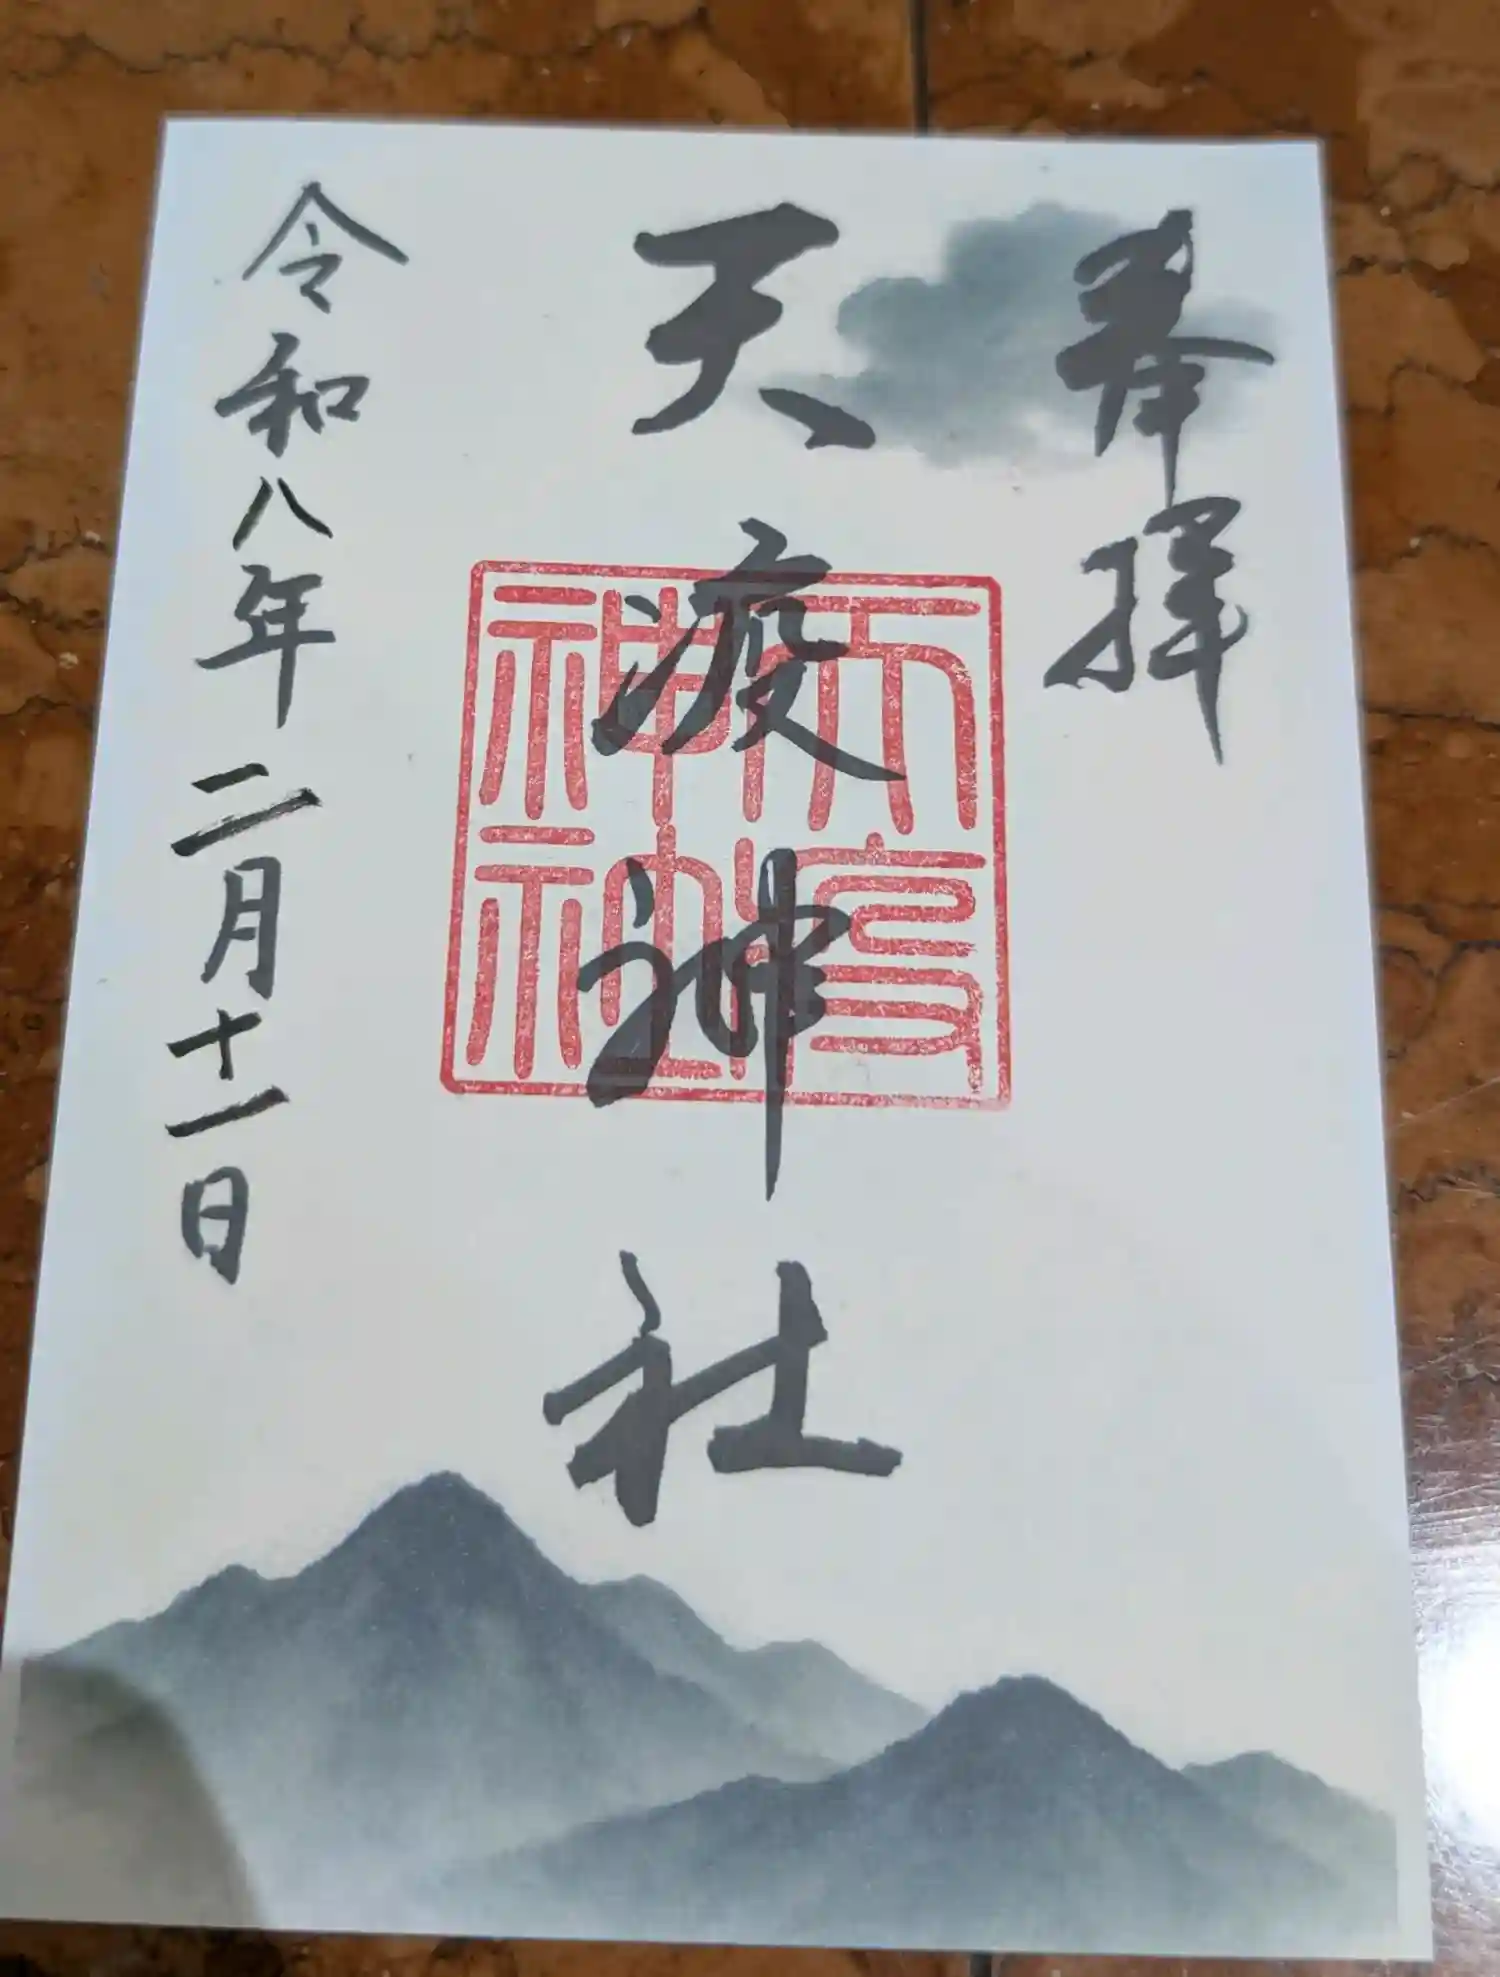 奉拝
天疫神社
天疫
神社
令和八年二月十一日